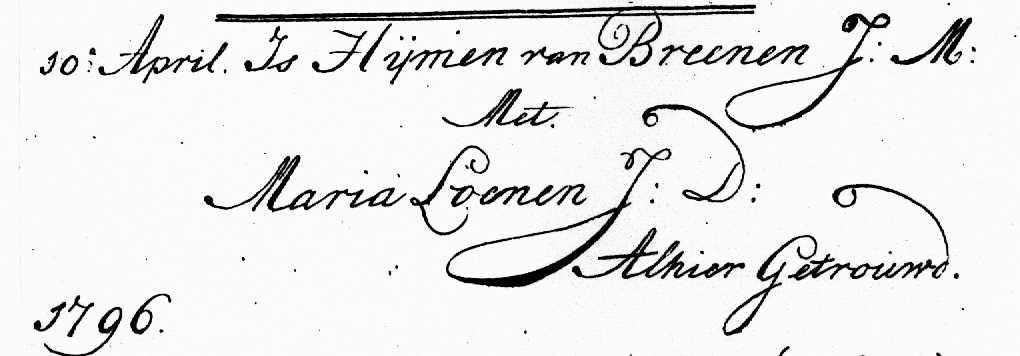 10: April. Is Hÿmen van Breenen J: M:
Met.
Maria Loenen J: D:
Alhier Getrouwd.
1796.